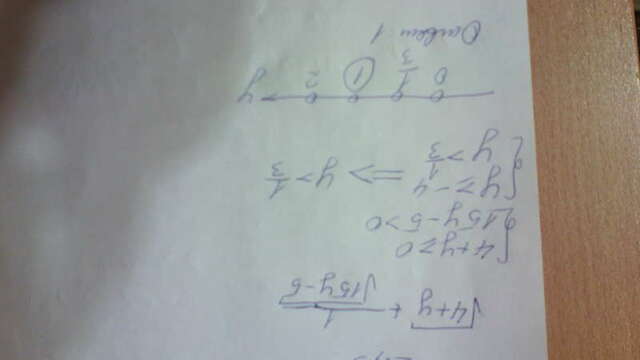 √4+y + 1/√15y-5
{4+y≥0
15y-5>0
{y≥-4
y>1/3 => y>1/3
0 1/3 1 2 y
Ответ 1